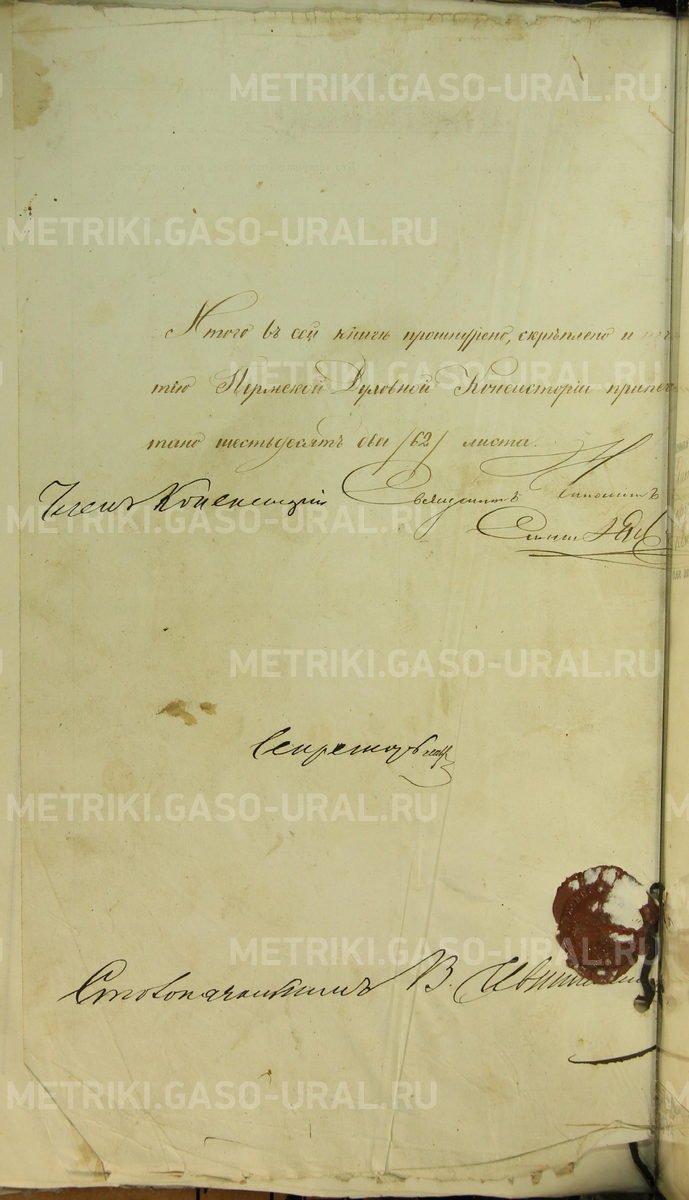 METRIKI.GASO-URAL.RU
METRIKI.GASO-URAL.RU
Итого въ сей книгѣ прошнурено, скрѣплено и
тію Пермской Духовной Консисторіи припеча
тано шестьдесятъ два /62/ листа.
METRIKI.GASO-URAL.RU
Членъ Консисторіи Священникъ
METRIKI.GASO-URAL.RU
METRIKI.GASO-URAL.RU
Секретарь
METRIKI.GASO-URAL.RU
METRIKI.GASO-URAL.RU
Столоначальникъ В.
METRIKI.GASO-URAL.RU